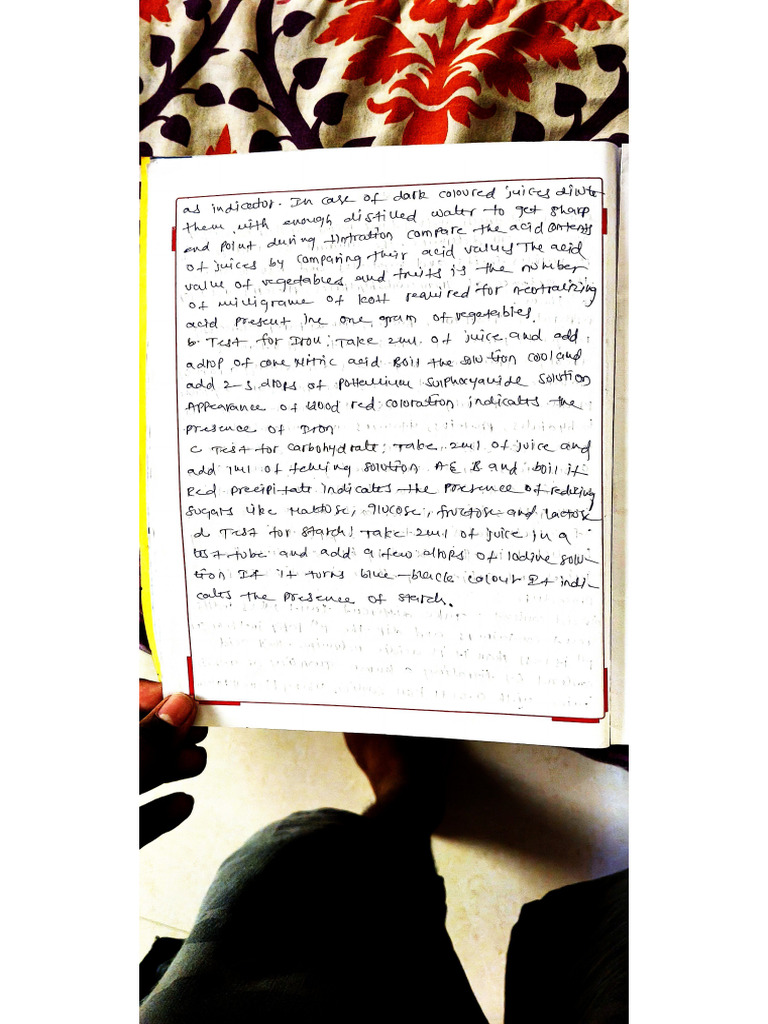 as indicator. In case of dark coloured juices dilute
them with enough distilled water to get sharp
end point during tintration compare the acid contents
of juices by comparing their acid values The acid
value of vegetables and fruits is the number
of milligrame of KOH required for neutralizing
acid present ine one gram of vegetables
b. Test for Iron; Take 2ml. of juice and add
adrop of conc Nitric acid Boil the solution cool and
add 2-3 drops of pottallium sulphocyanide solution
Appearance of blood red coloration indicates the
presence of Iron
c Test for carbohydrate; Take 2ml of juice and
add 1ml of fehling solution A & B and boil it
Red precipitate indicates the presence of reducing
sugars like Maltose, glucose, fructose and lactose
d Test for starch; Take 2ml of juice in a
test tube and add a few drops of Iodine solu-
tion If it turns blue-black colour It indi-
cates the presence of starch.